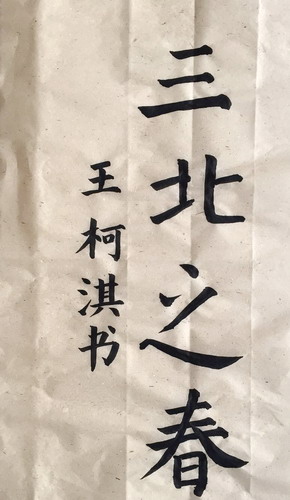 三北之春
王柯淇书